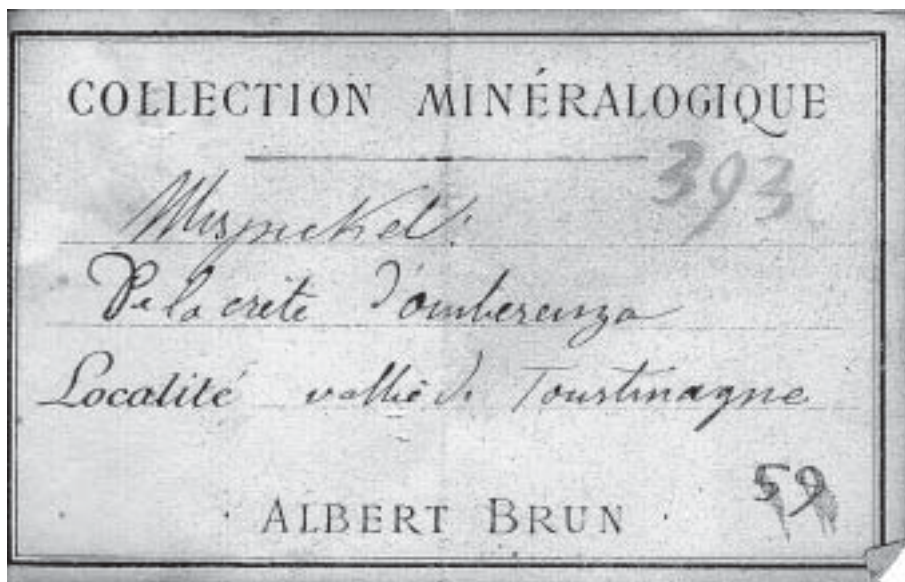 COLLECTION MINÉRALOGIQUE
393
Mispickel.
De la crête d'omberenza
Localité vallée de Tourtmagne
59
ALBERT BRUN